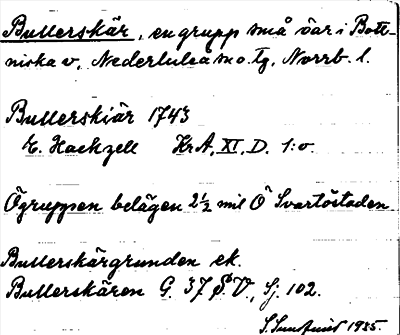 Bullerskär, en grupp små öar i Bott-
niska v. Nederluleå sn o. tg, Norrb. l.
Bullerskiär 1743
E. Hackzell KrA, XI, D. 1:o.
Ögruppen belägen 2½ mil Ö Svartöstaden.
Bullerskärgrunden ek.
Bullerskären G. 37 SV, Sj. 102.
1935.